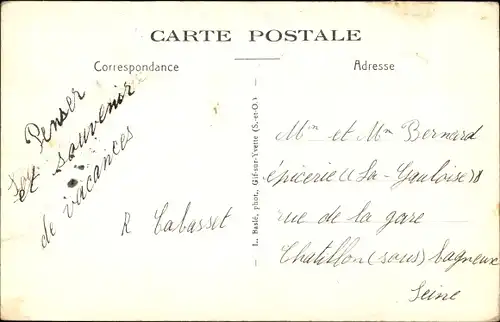 CARTE POSTALE
Correspondance
Adresse
Penser
et souvenir
de vacances
R Cabasset
L. Baslé, phot., Gif-sur-Yvette (S.-et-O.)
Mme et Mm Bernard
épicerie "La Gauloise"
rue de la gare
Chatillon (sous) bagneux
Seine